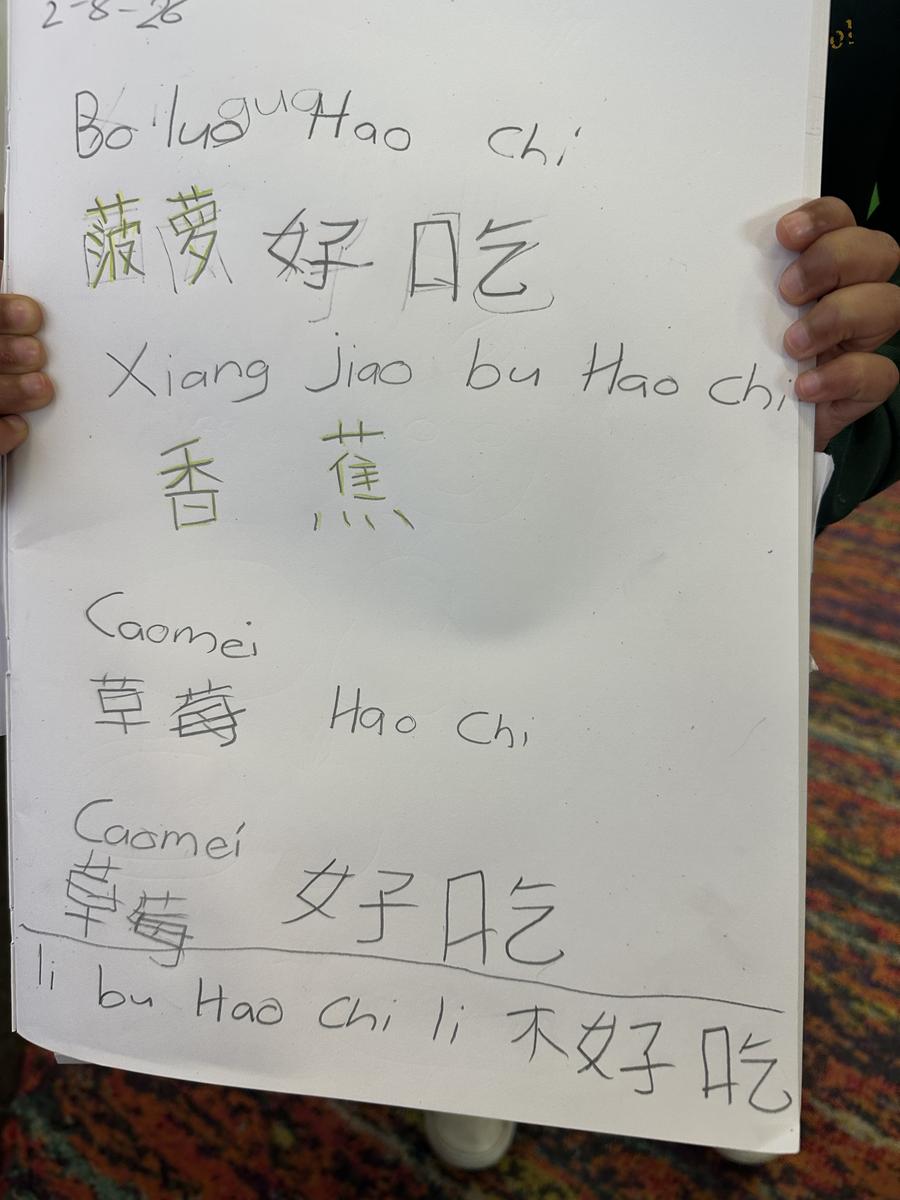 2-8-26
Bo luo gua Hao Chi
菠萝 好吃
Xiang jiao bu Hao chi
香 蕉
Caomei
草莓 Hao Chi
Caomei
草莓 好吃
li bu Hao Chi li 不好吃